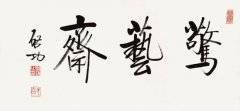 驚藝齋
啓功